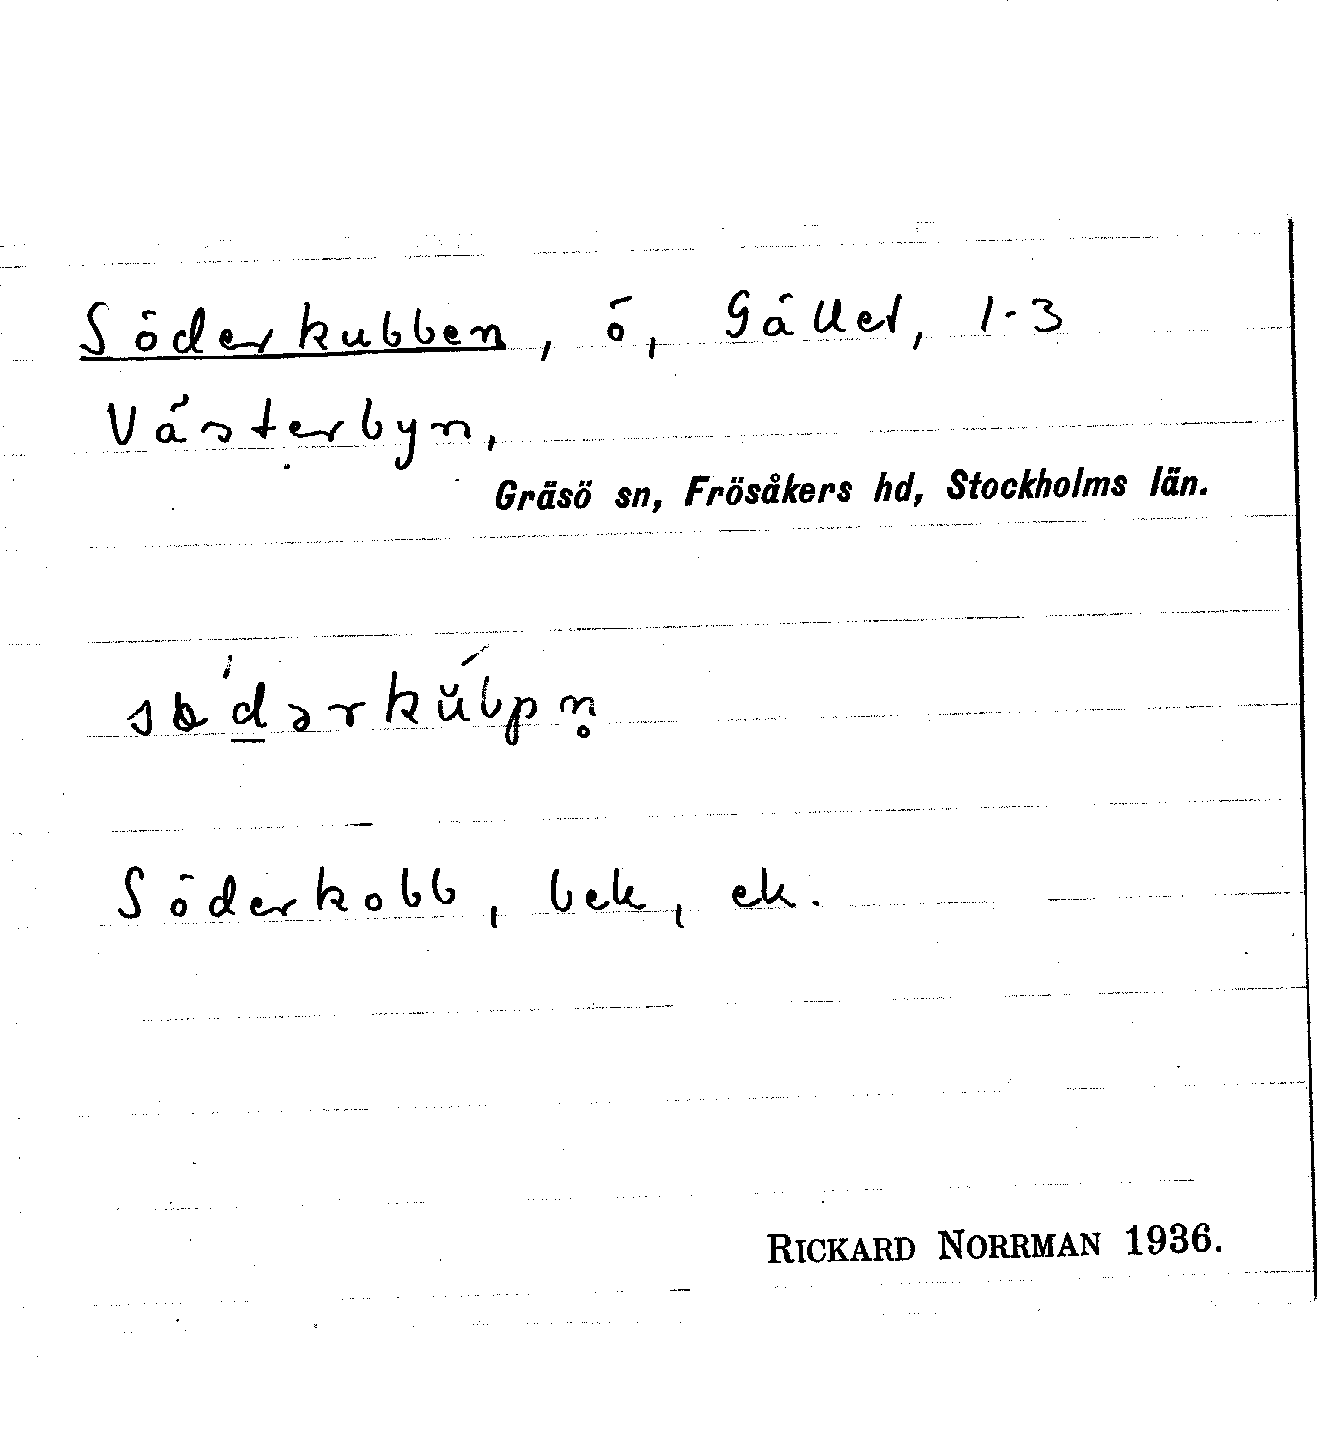 Söderkubben, ö, Gället, 1-3
Västerbyn,
Gräsö sn, Frösåkers hd, Stockholms län.
Söderkobb, bek, ek.
RICKARD NORRMAN 1936.